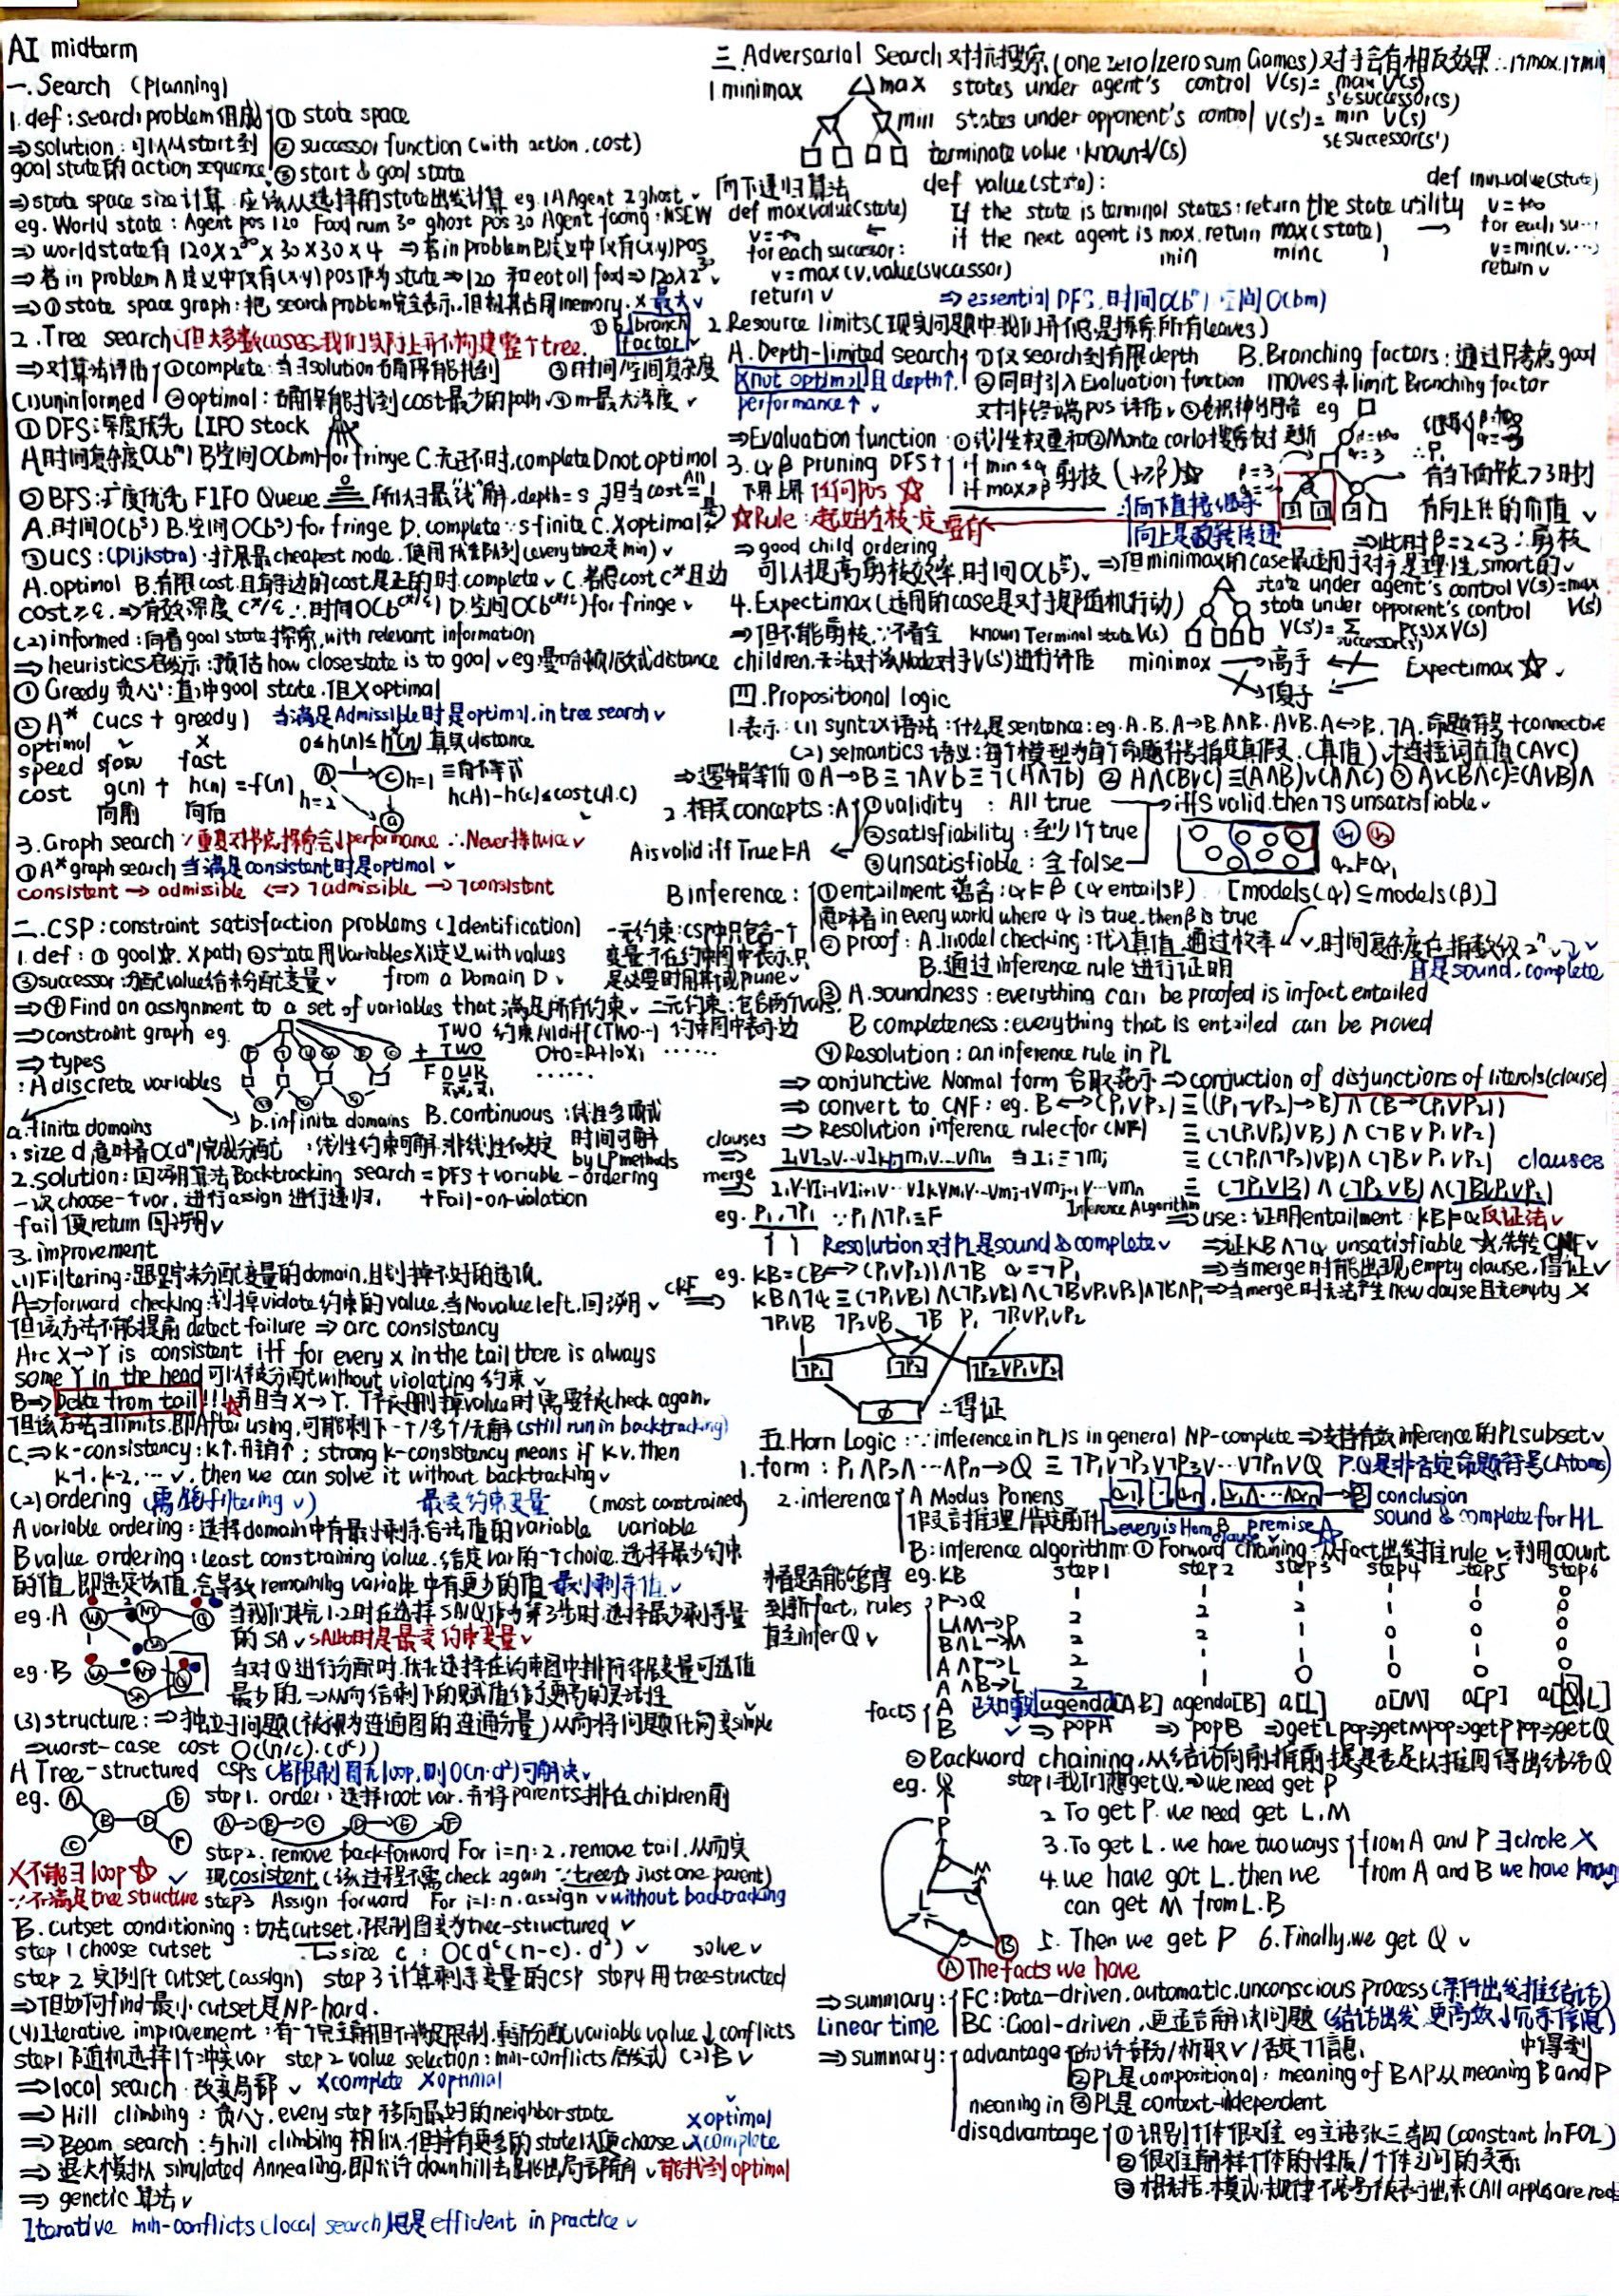 AI midterm
一.Search (Planning)
1.def:search problem组成 ① state space
⇒solution:可以从start到 ② successor function (with action.cost)
goal state的action sequence. ③ start & goal state
⇒state space size计算 应该从选择的state出发计算 eg.1个Agent 2 ghost
eg. World state: Agent pos 120 Food num 30 ghost pos 30 Agent facing:NSEW
⇒ worldstate有 120×2³⁰×30×30×4 ⇒若in problem B定义中仅有(x,y)pos
⇒若in problem A定义中仅有(x,y)pos作为state⇒120 和eat all food⇒120×2³⁰
⇒①state space graph:把search problem完全表示.但极其占用memory.×
2.Tree search 但大多数cases,我们实际上并不构建整个tree. ① b branch factor 最大
⇒对算法评估 ①complete:当∃solution确保能找到 ③时间/空间复杂度
(1)uninformed ②optimal:确保能找到cost最少的path ③m最大深度
①DFS:深度优先 LIFO stack
A.时间复杂度O(bᵐ) B.空间O(bm) for fringe C.无环时,complete D.not optimal
②BFS:广度优先 FIFO Queue 所以∃最"浅"解,depth=s 担当cost All=1
A.时间O(bˢ) B.空间O(bˢ) for fringe D.complete∵s finite C.×optimal
③UCS:(Dijkstra)·扩展最cheapest node.使用优先队列(every time是min)
A.optimal B.有限cost且每边的cost是正的时.complete C.若解cost C*且边
cost≥ε.⇒有效深度C*/ε∴时间O(b^(C*/ε)) D.空间O(b^(C*/ε)) for fringe
(2)informed:向着goal state探索,with relevant information
⇒ heuristics启发示:预估how close state is to goal eg:曼哈顿/欧式distance
①Greedy贪心:直冲goal state.但×optimal
②A* (ucs + greedy) 当满足Admissible时是optimal.in tree search
optimal ✓ × 0≤h(n)≤h*(n)真实distance
speed slow fast A 1 C h=1 ≡三角不等式
cost g(n) + h(n) = f(n) h=2 h(A)-h(C)≤cost(A.C)
向前 向后 G
3.Graph search ∵重复对节点探索会↓performance ∴Never探twice
①A*graph search当满足consistent时是optimal
consistent → admissible <=> ¬admissible → ¬consistent
二.CSP:constraint satisfaction problems (Identification)
1.def:① goal✓. ×path ②state用Variables Xi定义with values
③successor:分配value给未分配变量 from a Domain D
一元约束:CSP中只包含一个
变量不在约束图中表示,只
是必要时用其prune
⇒④Find an assignment to a set of variables that满足所有约束 二元约束:包含两个vars.
⇒constraint graph eg. TWO 约束Alldiff(TWO…) 约束图中表示边
⇒ types + TWO O+O=R+10X₁ ……
:A discrete variables FOUR ……
a.finite domains b.infinite domains B.continuous:线性约束
:size d意味着O(dⁿ)完成分配 :线性约束可解.非线性不确定 时间可解 by LP methods
2.solution:回溯算法Backtracking search = DFS + variable-ordering
一次choose一个var,进行assign进行递归, +Fail-on-violation
fail便return回溯
3.improvement
(1)Filtering:跟踪未分配变量的domain,且划掉不好的选项.
A⇒forward checking:划掉violate约束的value.当No value left.回溯
但该方法不能提前detect failure ⇒ arc consistency
Arc X→Y is consistent iff for every x in the tail there is always
some Y in the head可以被分配without violating约束
B⇒Delete from tail!!!☆并且当X→Y.Y被删掉value时需要被check again.
但该方法∃limits.即After using,可能剩下一个/多个/无解(still run in backtracking)
C.⇒k-consistency:k↑开销↑; strong k-consistency means if k✓, then
k-1,k-2,… ✓, then we can solve it without backtracking
(2)ordering (需能filtering✓) 最受约束变量 (most constrained variable)
A variable ordering:选择domain中有最少剩余合法值的variable
B value ordering:least constraining value.给定var的一个choice.选择最少约束
的值.即选定该值,会导致remaining variable中有更少的值 最少剩余值
eg.A 当我们填完1.2时在选择SA/Q作为第3步时.选择最少剩余量
的SA SA此时是最受约束变量
eg.B 当对Q进行分配时.优先选择在约束图中排除邻居变量可选值
最少的.⇒从而给剩下的赋值留了更高的灵活性
(3)structure:⇒独立子问题(被视为连通图的连通分量)从而将问题化简变simple
⇒worst-case cost O((n/c)·(dᶜ))
A Tree-structured CSPs (若限制图无loop,则O(n·d²)可解决
eg. step1. order:选择root var.并将parents排在children前
step2. remove backforward For i=n:2, remove tail.从而实
×不能∃loop☆ 现cosistent(该过程不需check again∵tree just one parent)
∵不满足tree structure step3 Assign forward For i=1:n.assign without backtracking
B.Cutset conditioning:切去cutset.限制图变为tree-structured
step 1 choose cutset size c : O(dᶜ(n-c)·d²) solve
step 2 实例化cutset(assign) step 3计算剩余变量的CSP step4用tree-structed
⇒但如何find最小cutset是NP-hard.
(4)Iterative improvement:有一个完全解但不满足限制.重新分配variable value↓conflicts
step1随机选择1个冲突var step 2 value selection:min-conflicts启发式 (2)B
⇒local search 改变局部 ×complete ×optimal
⇒ Hill climbing:贪心.every step移向最好的neighbor state ×optimal
⇒ Beam search:与hill climbing相似.但持有更多的state以便choose ×complete
⇒退火模拟simulated Annealing.即允许downhill去跳出局部解 能找到optimal
⇒ genetic算法
Iterative min-conflicts(local search)但是efficient in practice
三.Adversarial Search对抗搜索(one zero/zero sum Games)对手会有相反效果∴1个max.1个min
1 minimax max states under agent's control V(s)= max V(s') s'∈successor(s)
min states under opponent's control V(s')= min V(s) s∈successor(s')
terminate value:known=V(s)
向下递归算法 def value(state): def min.value(state)
def maxvalue(state) If the state is terminal states:return the state utility v=+∞
v=-∞ if the next agent is max.return max(state) for each su…
for each succssor: min min( ) v=min(v.…)
v=max(v,value(successor) return v
return v ⇒essential DFS.时间O(bᵐ) 空间O(bm)
2.Resource limits(现实问题中我们并不总是探索所有leaves)
A.Depth-limited search ①仅search到有限depth B.Branching factors:通过只考虑good
×not optimal且depth↑, ②同时引入Evaluation function moves来limit Branching factor
performance↑ 对非终端pos评估 ③神经网络 eg
⇒Evaluation function ①线性权重和②Monte carlo搜索树 更新
3.αβ pruning DFS↑ if min≤α 剪枝(+>β)☆ β=3
下界上界 任何pos☆ if max≥β ∴向下直接继承
☆Rule:起始左枝一定要有 向上是翻转传递
⇒good child ordering ⇒此时β=2<3∴剪枝
可以提高剪枝效率.时间O(b^(m/2)) ⇒但minimax的case最适用于对手是理性,smart的
4.Expectimax(适用的case是对手即随机行动) state under agent's control V(s)=max V(s)
state under opponent's control
⇒但不能剪枝∵不看全 known Terminal state V(s) V(s')= Σ P(s)×V(s) successor(s')
children.无法对该Node对手V(s')进行评估 minimax → 高手 Expectimax☆
傻子
四.Propositional logic
1.表示:(1) syntax语法:什么是sentence:eg.A.B.A→B.A∧B.A∨B.A↔B.¬A.命题符号+connective
(2) semantics语义:每个模型为每个命题符号指定真假.(真值)+连接词真值(AVC)
⇒逻辑等价 ①A→B≡¬A∨b≡¬(A∧¬b) ②A∧(B∨C)≡(A∧B)∨(A∧C) ③A∨(B∧C)≡(A∨B)∧
2.相关concepts:A ①validity : All true → iff S valid.then ¬S unsatisfiable
②satisfiability:至少1个true
A is valid iff True⊨A ③unsatisfiable:全false α₂⊨α₁
B inference: ①entailment蕴含:α⊨β (α entails β) [models(α)⊆models(β)]
意味着in every world where α is true.then β is true
②proof: A.model checking:代入真值.通过枚举 时间复杂度呈指数级2ⁿ
B.通过inference rule进行证明 且是sound.complete
③A.soundness:everything can be proofed is in fact entailed
B completeness:everything that is entailed can be proved
④Resolution:an inference rule in PL
⇒ conjunctive Normal form合取范示⇒conjuction of disjunctions of literals(clause)
⇒ convert to CNF:eg. B↔(P₁∨P₂)≡((P₁∨P₂)→B)∧(B→(P₁∨P₂))
⇒ Resolution inference rule(for CNF) ≡(¬(P₁∨P₂)∨B)∧(¬B∨P₁∨P₂)
clauses ⇒ l₁∨l₂∨…∨lₖ,m₁∨…∨mₙ 当lᵢ≡¬mⱼ ≡((¬P₁∧¬P₂)∨B)∧(¬B∨P₁∨P₂) clauses
merge ⇒ l₁∨…∨lᵢ₋₁∨lᵢ₊₁∨…∨lₖ∨m₁∨…∨mⱼ₋₁∨mⱼ₊₁∨…∨mₙ ≡(¬P₁∨B)∧(¬P₂∨B)∧(¬B∨P₁∨P₂)
eg. P₁,¬P₁ ∵P₁∧¬P₁≡F Inference Algorithm ⇒use:证明entailment:KB⊨α反证法
{ } Resolution对PL是sound & complete ⇒证KB∧¬α unsatisfiable ☆先转CNF
eg. KB=(B↔(P₁∨P₂))∧¬B α=¬P₁ ⇒当merge时能出现empty clause.得证
CNF⇒ KB∧¬α≡(¬P₁∨B)∧(¬P₂∨B)∧(¬B∨P₁∨P₂)∧¬B∧P₁ ⇒当merge时无法产生new clause且无empty ×
¬P₁∨B ¬P₂∨B ¬B P₁ ¬B∨P₁∨P₂
¬P₁ ¬P₂ ¬P₂∨P₁∨P₂
∅ ∴得证
五.Horn Logic:∵inference in PL is in general NP-complete⇒支持有效inference的PL subset
1.form:P₁∧P₂∧…∧Pn→Q≡¬P₁∨¬P₂∨¬P₃∨…∨¬Pn∨Q P.Q是非否定命题符号(Atoms)
2.inference A Modus Ponens α₁,…,αn,α₁∧…∧αn→β conclusion
假言推理/肯定前件 every is Horn clause premise☆ sound & complete for HL
B:inference algorithm ① Forward chaining:从fact出发推rule 利用count
推导能够得 eg.KB step1 step2 step3 step4 step5 step6
到新fact, rules P→Q 1 1 1 1 1 0
直至infer Q L∧M→P 2 2 2 1 0 0
B∧L→M 2 2 1 0 0 0
A∧P→L 2 1 1 1 0
A∧B→L 2 1 0 0 0 0
facts A B 已知事 agenda[AB] agenda[B] a[L] a[M] a[P] a[Q L]
⇒ pop A ⇒ pop B ⇒get L pop⇒get M pop⇒get P pop⇒get Q
②Backword chaining,从结论向前推前提是否足以推回得出结论Q
eg. Q step1我们想get Q,⇒we need get P
P 2 To get P. we need get L.M
3.To get L. we have two ways from A and P ∃circle ×
M 4.we have got L.then we from A and B we have known
L can get M from L.B
B 5. Then we get P 6.Finally.we get Q
A The facts we have
⇒summary: FC:Data-driven.automatic.unconscious process(条件出发推结论)
Linear time BC:Goal-driven,更适合解决问题 (结论出发 更高效
⇒ summary: advantage ①允许部分/析取∨/否定¬信息. 中得到
②PL是compositional:meaning of B∧P从meaning B and P
meaning in ③PL是context-independent
disadvantage ①识别个体很难 eg主语张三李四(constant in FOL)
②很难解释个体的性质/个体之间的关系
③概括.模式.规律不容易被表示出来(All apples are red